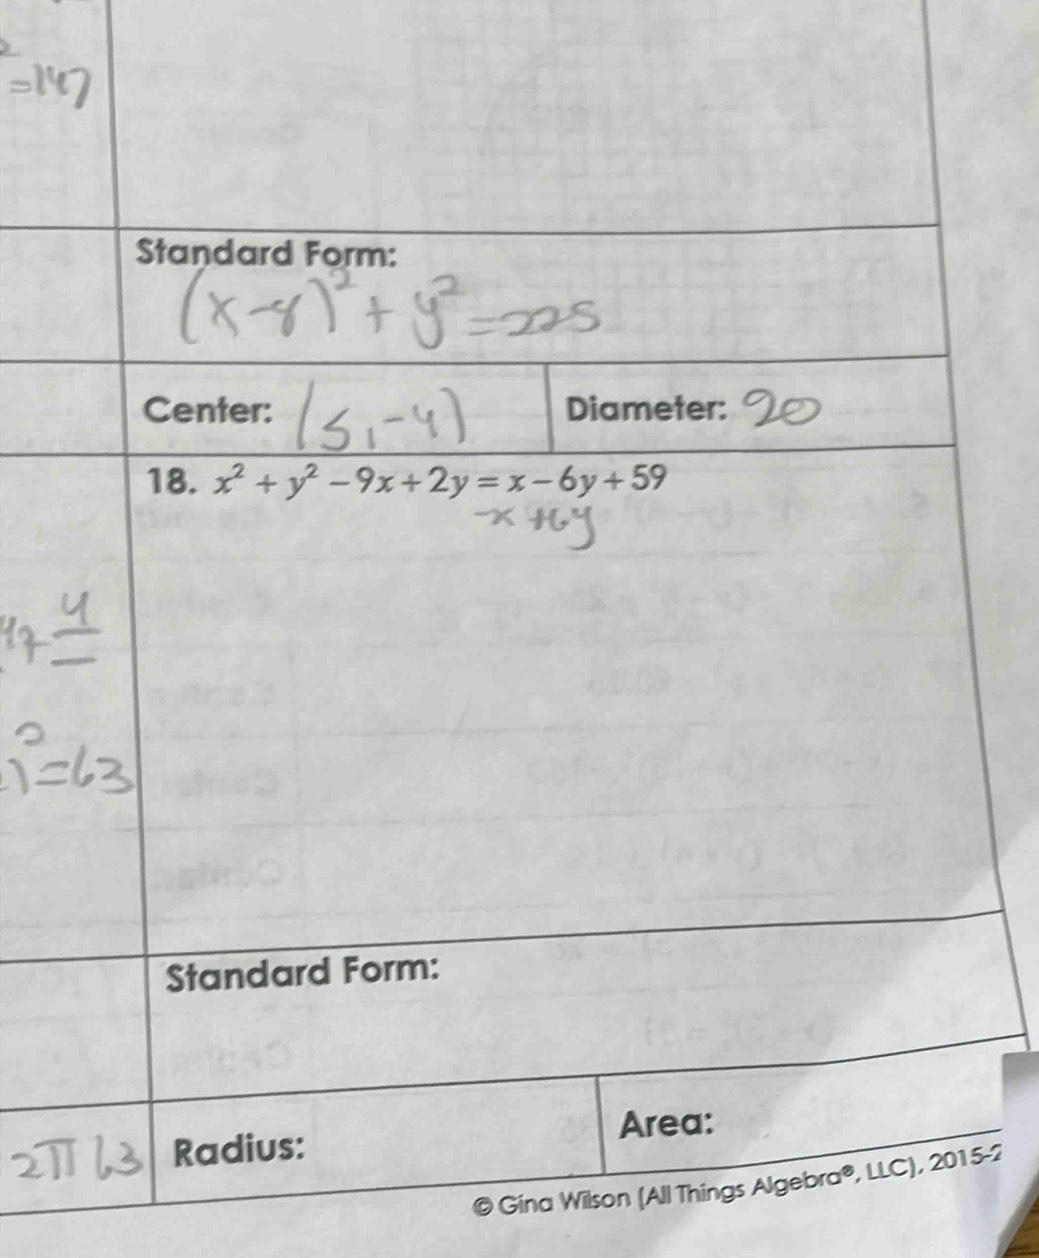 =147
Standard Form:
(x-8)² + y² = 225
Center: (5, -4) Diameter: 20
18. x² + y² – 9x + 2y = x – 6y + 59
-x +6y
4
=63
Standard Form:
2π 63 Radius: Area:
© Gina Wilson (All Things Algebra®, LLC), 2015-2